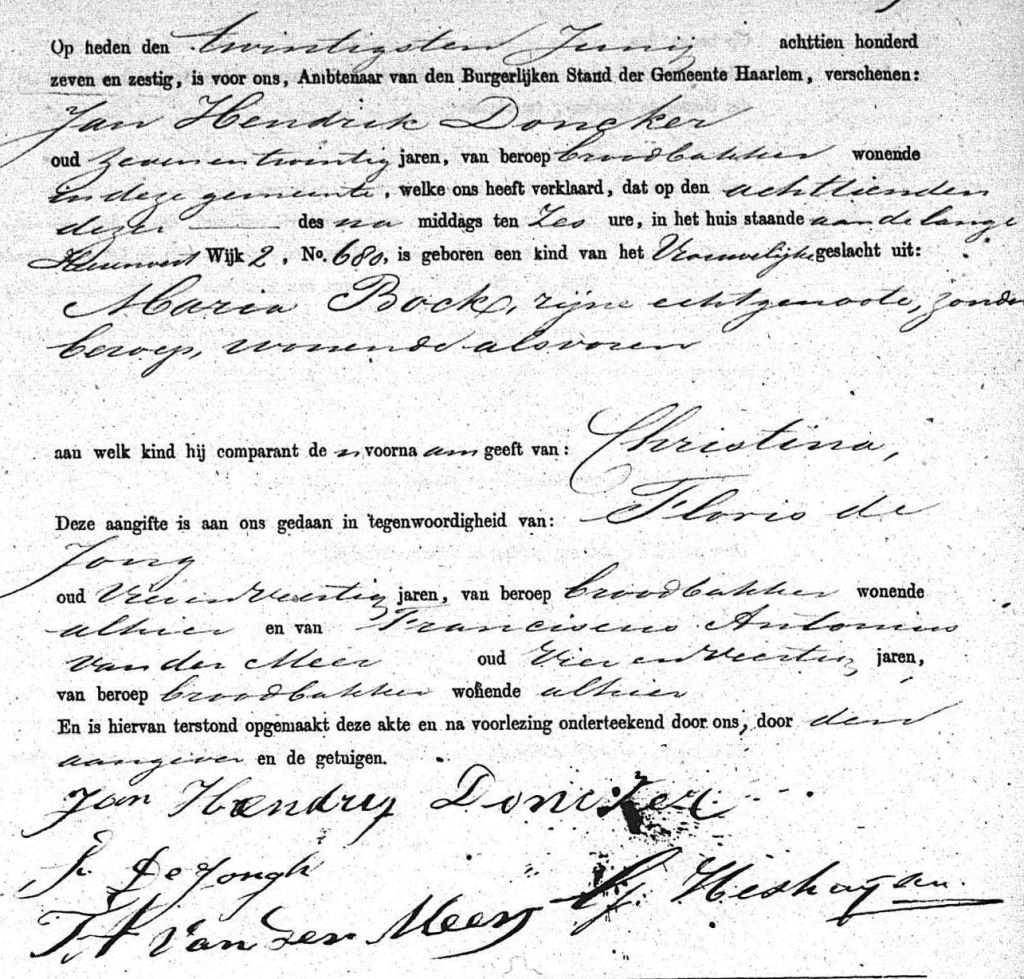 Op heden den twintigsten Junij achttien honderd
zeven en zestig, is voor ons, Ambtenaar van den Burgerlijken Stand der Gemeente Haarlem, verschenen:
Jan Hendrik Doncker
oud zeven en twintig jaren, van beroep broodbakker wonende
in deze gemeente, welke ons heeft verklaard, dat op den achttienden
dezer des na middags ten zes ure, in het huis staande aan de lange
Wijk 2, No. 680, is geboren een kind van het Vrouwelijke geslacht uit:
Maria Bock, zijne echtgenoote, zonder
beroep, wonende alsvoren
aan welk kind hij comparant de n voorna am geeft van: Christina,
Deze aangifte is aan ons gedaan in tegenwoordigheid van: Floris de
Jong
oud Vier en Veertig jaren, van beroep broodbakker wonende
alhier en van Franciscus Antonius
van der Meer oud Vier en Veertig jaren,
van beroep broodbakker wonende alhier
En is hiervan terstond opgemaakt deze akte en na voorlezing onderteekend door ons, door den
aangever en de getuigen.
Jan Hendrij Doncker
F. De Jongh
F A van der Meer